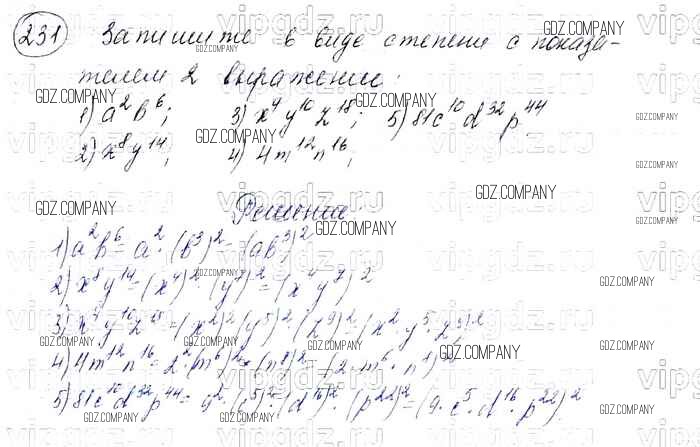 231 Запишите в виде степени с показа-
телем 2 выражение:
1) a²b⁶; 3) x⁴y¹⁰z¹⁸; 5) 81c¹⁰d³²p⁴⁴
2) x⁸y¹⁴; 4) 4m¹²n¹⁶;
Решение
1) a²b⁶ = a² · (b³)² = (ab³)²
2) x⁸y¹⁴ = (x⁴)² (y⁷)² = (x⁴y⁷)²
3) x⁴y¹⁰z¹⁸ = (x²)² (y⁵)² · (z⁹)² = (x² y⁵ · z⁹)²
4) 4m¹²n¹⁶ = 2² (m⁶)² · (n⁸)² = (2 · m⁶ · n⁸)²
5) 81c¹⁰d³²p⁴⁴ = 9² · (c⁵)² · (d¹⁶)² · (p²²)² = (9 · c⁵ · d¹⁶ · p²²)²
GDZ.COMPANY
vipgdz.ru